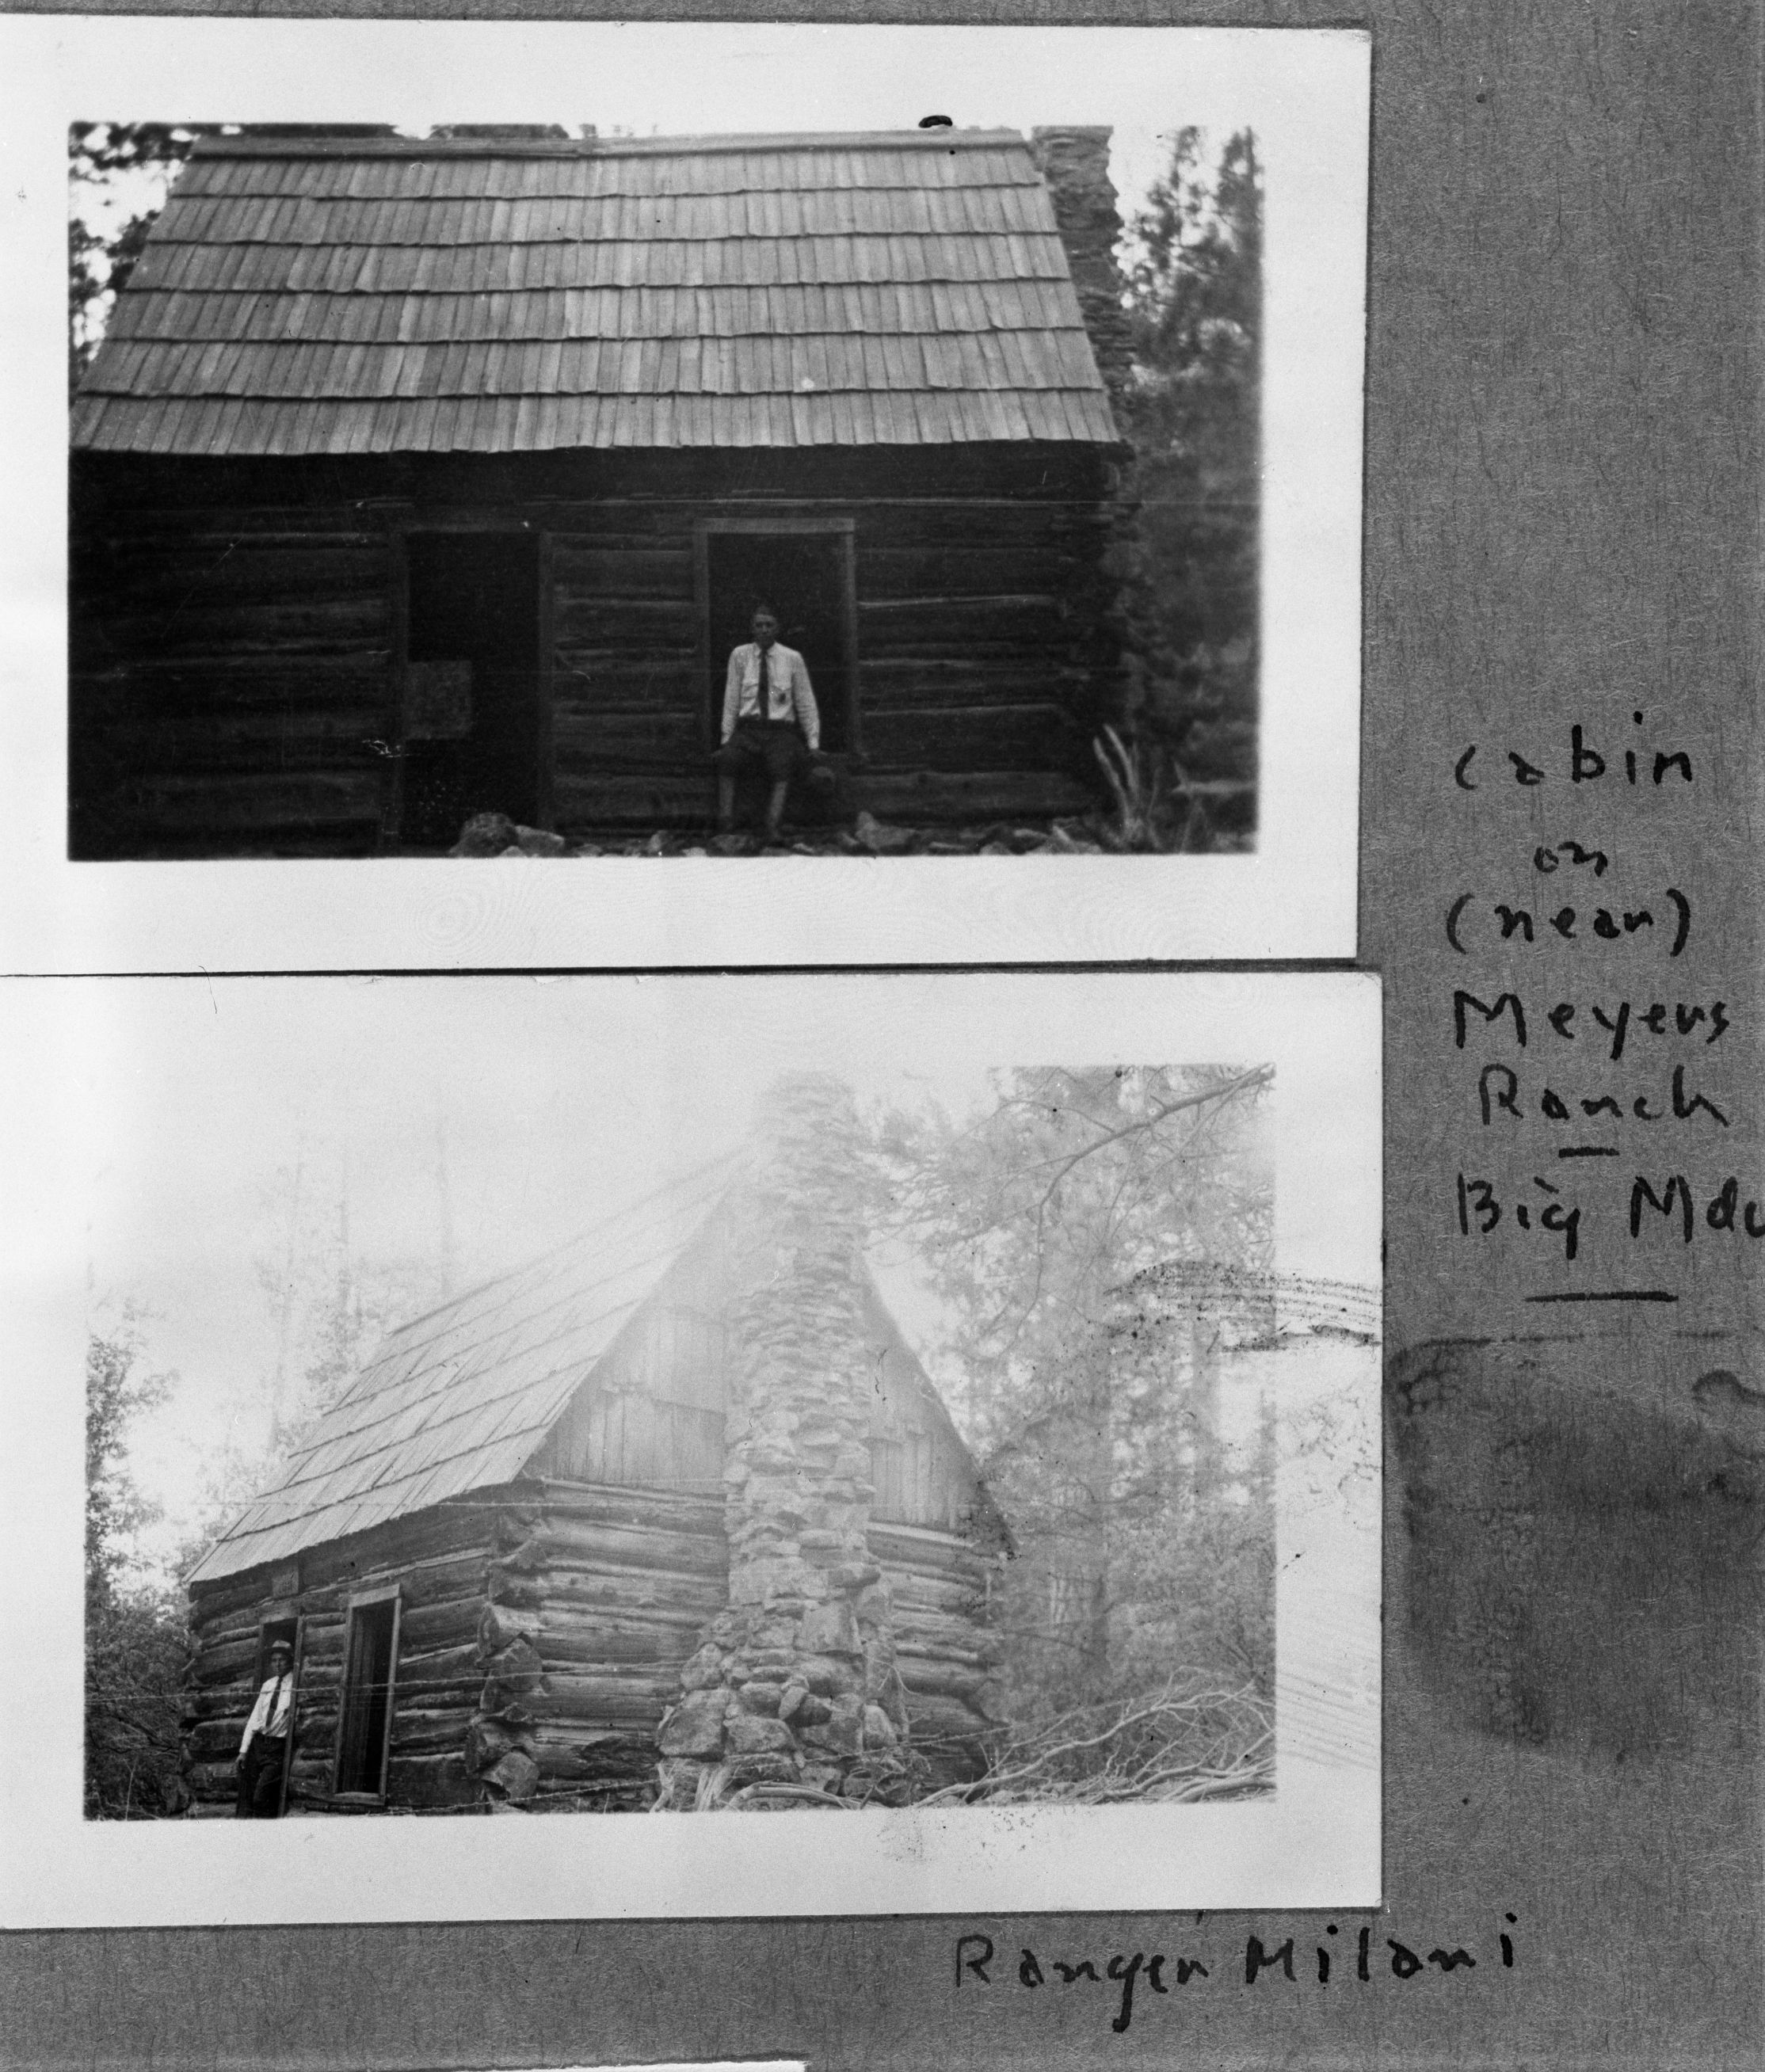 cabin
on
(near)
Meyers
Ranch
—
Big Mdw
Ranger Milani